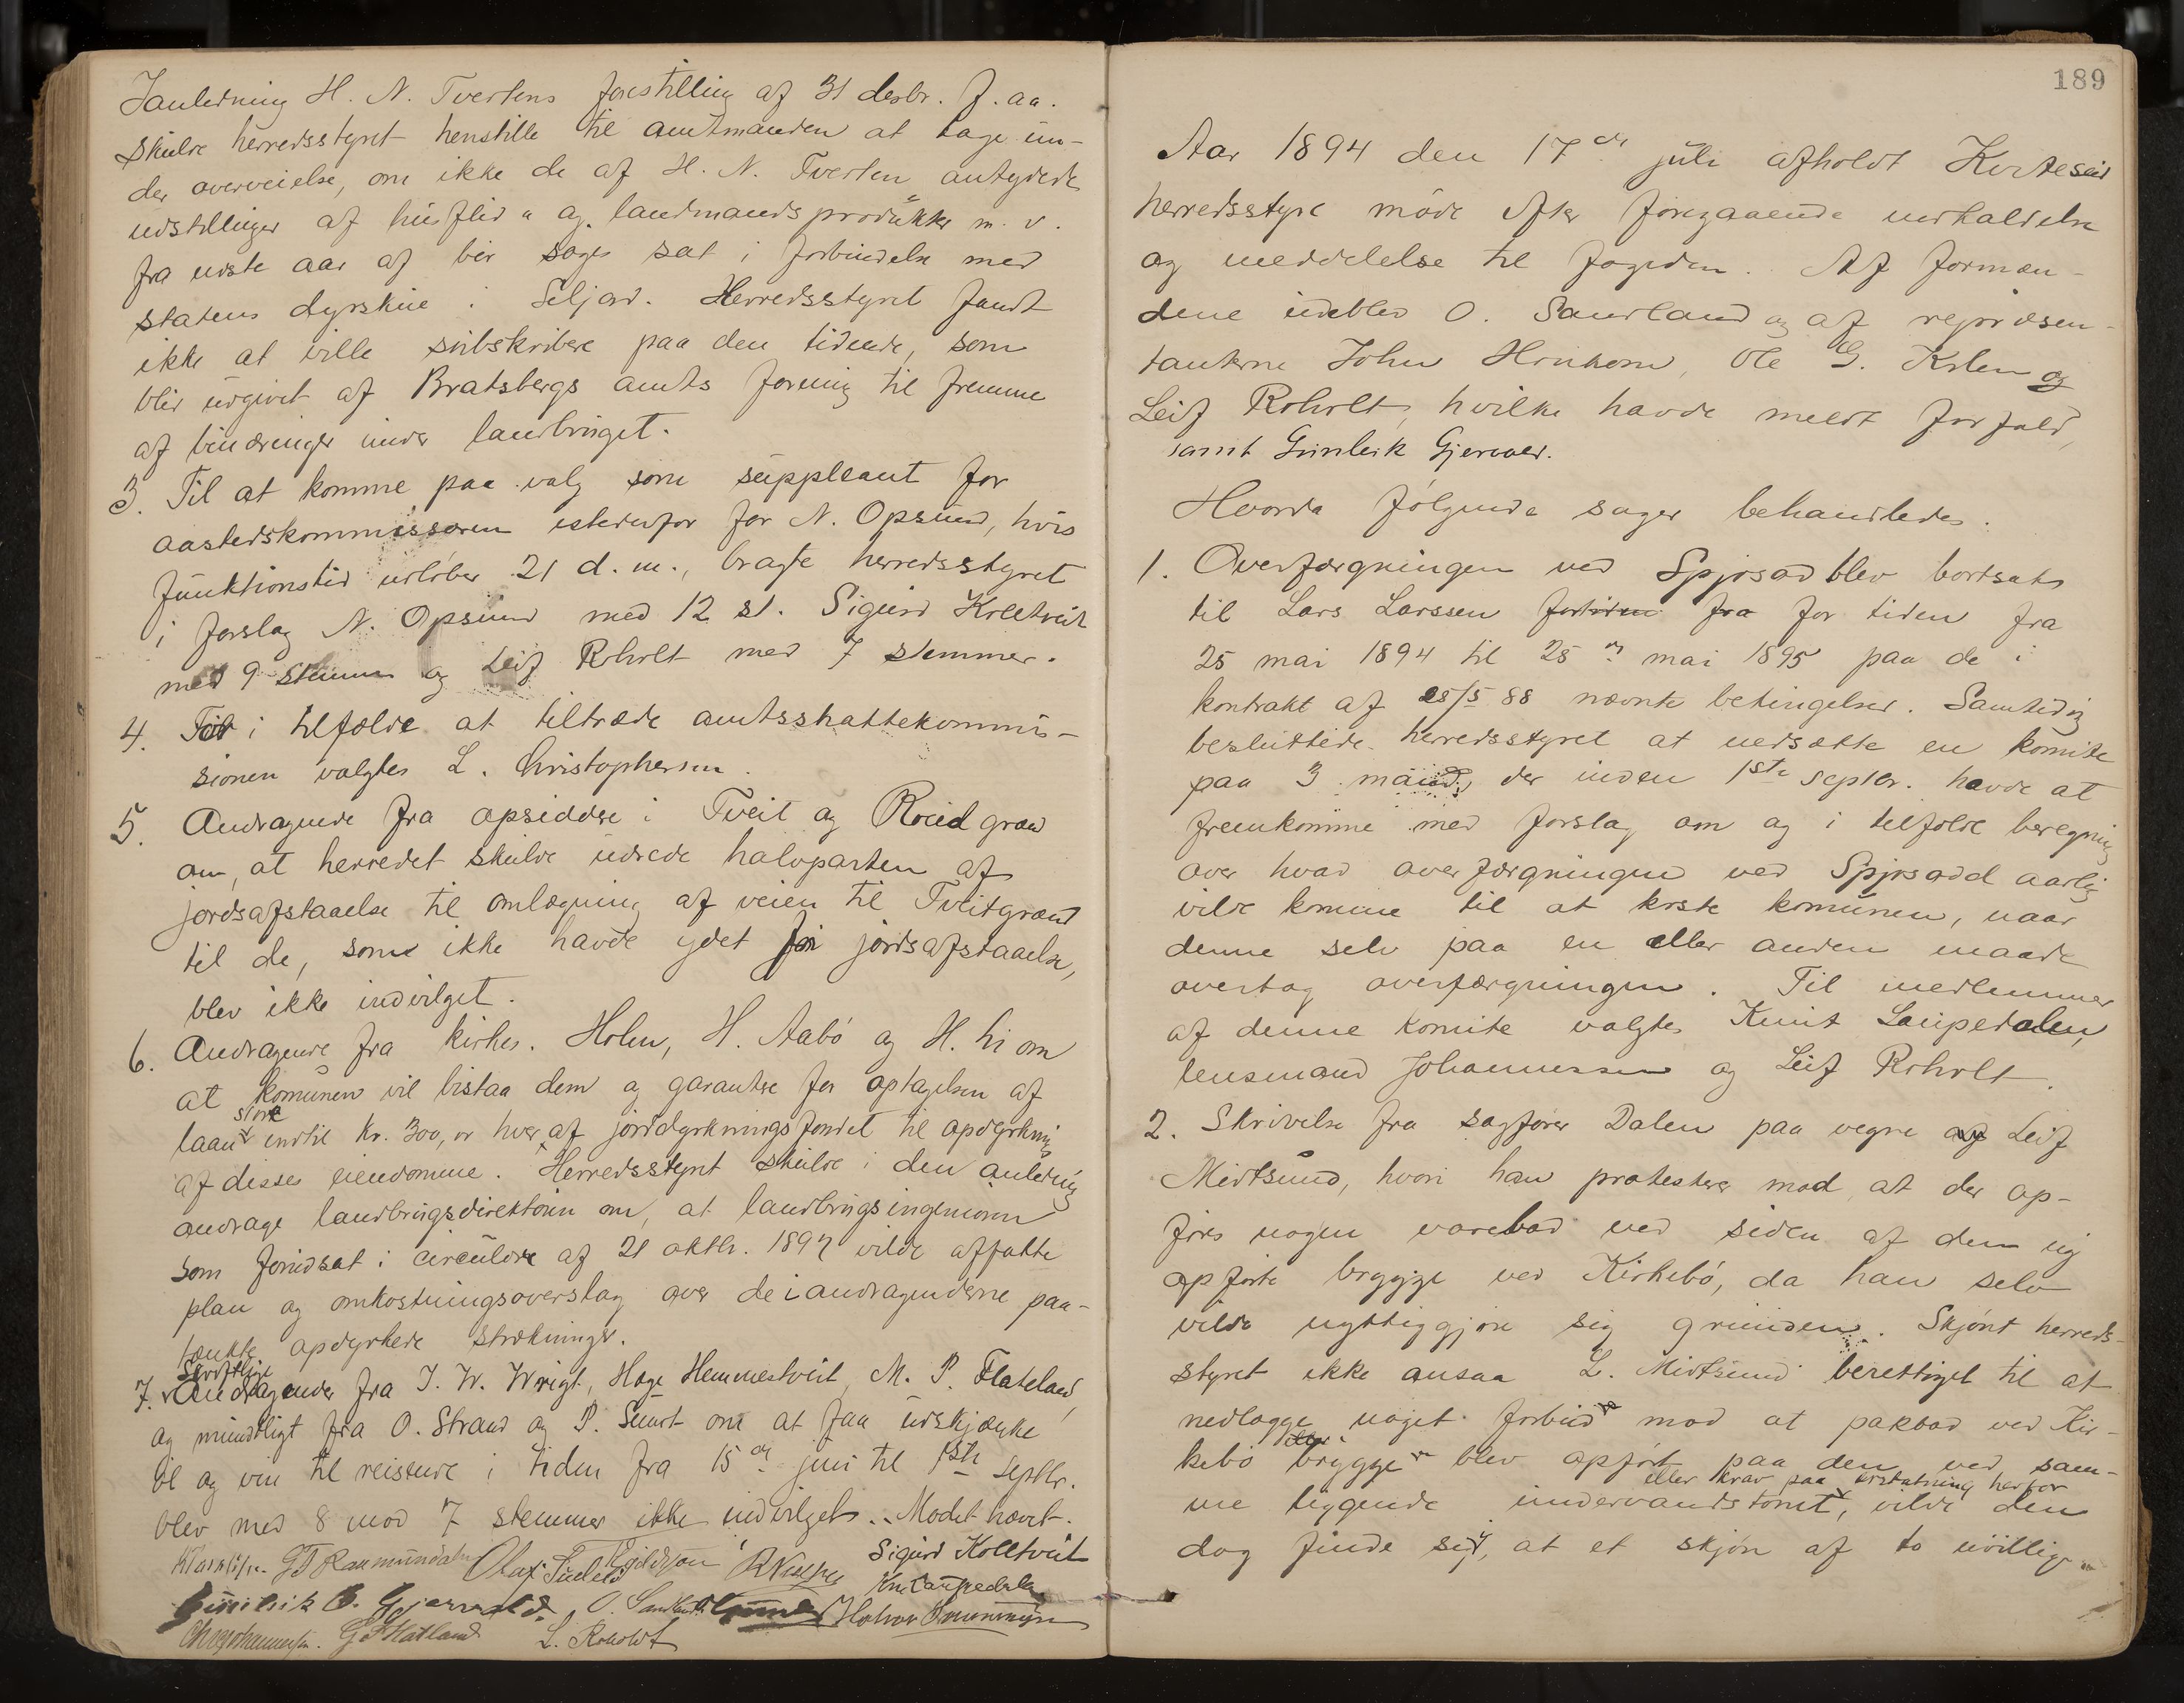 Ianledning H. N. Tvertens forestilling af 31 desbr. f. aa.
skulde herredsstyret henstille til amtmanden at tage un-
der overveielse, om ikke de af H. N. Tverten antydede
udstillinger af husflid og landmandsprodukter m. v.
fra neste aar af bør søges sat i forbindelse med
statens dyrskue i Seljord. Herredsstyret fandt
ikke at ville subskribere paa den tidende, som
blir udgivet af Bratsbergs amts forening til fremme
af binæringer under landbruget.
3. Til at komme paa valg som suppleant for
aastedskommissæren istedenfor for N. Opsund, hvis
funktionstid udløber 21 d. m., bragte herredsstyret
i forslag N. Opsund med 12 st. Sigurd Kolltveit
med 9 stemmer og Leif Roholt med 7 stemmer.
4. Til i tilfælde at tiltræde amtsskattekommis-
sionen valgtes L. Christophersen.
5. Andragende fra opsiddere i Tveit og Roied grænd
om, at herredet skulde udrede halvparten af
jordsafstaaelse til omlægning af veien til Tveitgrænd
til de, som ikke havde ydet fri jordsafstaaelse,
blev ikke indvilget.
6. Andragende fra kirkes. Holm, H. Aabø og H. Li om
at komunen vil bistaa dem og garantere for optagelsen af
laan store indtil Kr. 300,00 hver af jorddyrkningsfondet til opdyrkning
af disses eiendomme. Herredsstyret skulde i den anledning
andrage landbrugsdirektøren om, at landbrugsingeniøren
som forudsat i circulære af 21 oktbr. 1892 vilde affatte
plan og omkostningsoverslag over de i andragenderne paa-
tænkte opdyrkede strækninger.
7. Skriftlige Andragender fra I. W. Wrigt, Hage Hemmestveit, M. P. Flateland,
og mundtligt fra O. Strand og P. Sunst om at faa udskjænke
øl og vin til reisende i tiden fra 15de juni til 1ste septbr.
blev med 8 mod 7 stemmer ikke indvilget. Mødet hævet.
G T Raumundalen Olaf Tudeld Sigurd Kolltveit
Knut Laupedalen
Gunleik O. Gjervald. O. Sandland
G Hatland L. Roholdt
189
Aar 1894 den 17de juli afholdt Kviteseid
herredsstyre møde efter foregaaende indkaldelse
og meddelelse til fogeden. Af formæn-
dene udeblev O. Sandland og af repræsen-
tanterne John Hvithorn, Ole G. Kilen og
Leif Roholt, hvilke havde meldt forfald,
samt Gunleik Gjervald.
Hvorda følgende sager behandledes.
1. Overfærgningen ved Spjosod blev bortsat
til Lars Larssen fortiden fra for tiden fra
25 mai 1894 til 25de mai 1895 paa de i
kontrakt af 28/5 88 nævnte betingelser. Samtidig
besluttede herredsstyret at nedsætte en komite
paa 3 mænd, der inden 1ste septbr. havde at
fremkomme med forslag om og i tilfælde beregning
over hvad overfærgningen ved Spjosodd aarlig
vilde komme til at koste komunen, naar
denne selv paa en eller anden maade
overtog overfærgningen. Til medlemmer
af denne komite valgtes Knut Laupedalen,
lensmand Johannessen og Leif Roholt.
2. Skrivelse fra sagfører Dalen paa vegne af Leif
Midtsund, hvori han protesterer mod, at der op-
føres nogen varebod ved siden af den ny
opførte brygge ved Kirkebø, da han selv
vilde nyttiggjøre sig grunden. Skjønt herreds-
styret ikke ansaa L. Midtsund berettiget til at
nedlægge noget forbud mod at pakbod ved Kir-
kebø brygge blev opført paa den ved sam-
eller krav paa erstatning herfor
me liggende undervandstomt, vilde den
dog finde sig i, at et skjøn af to uvillige